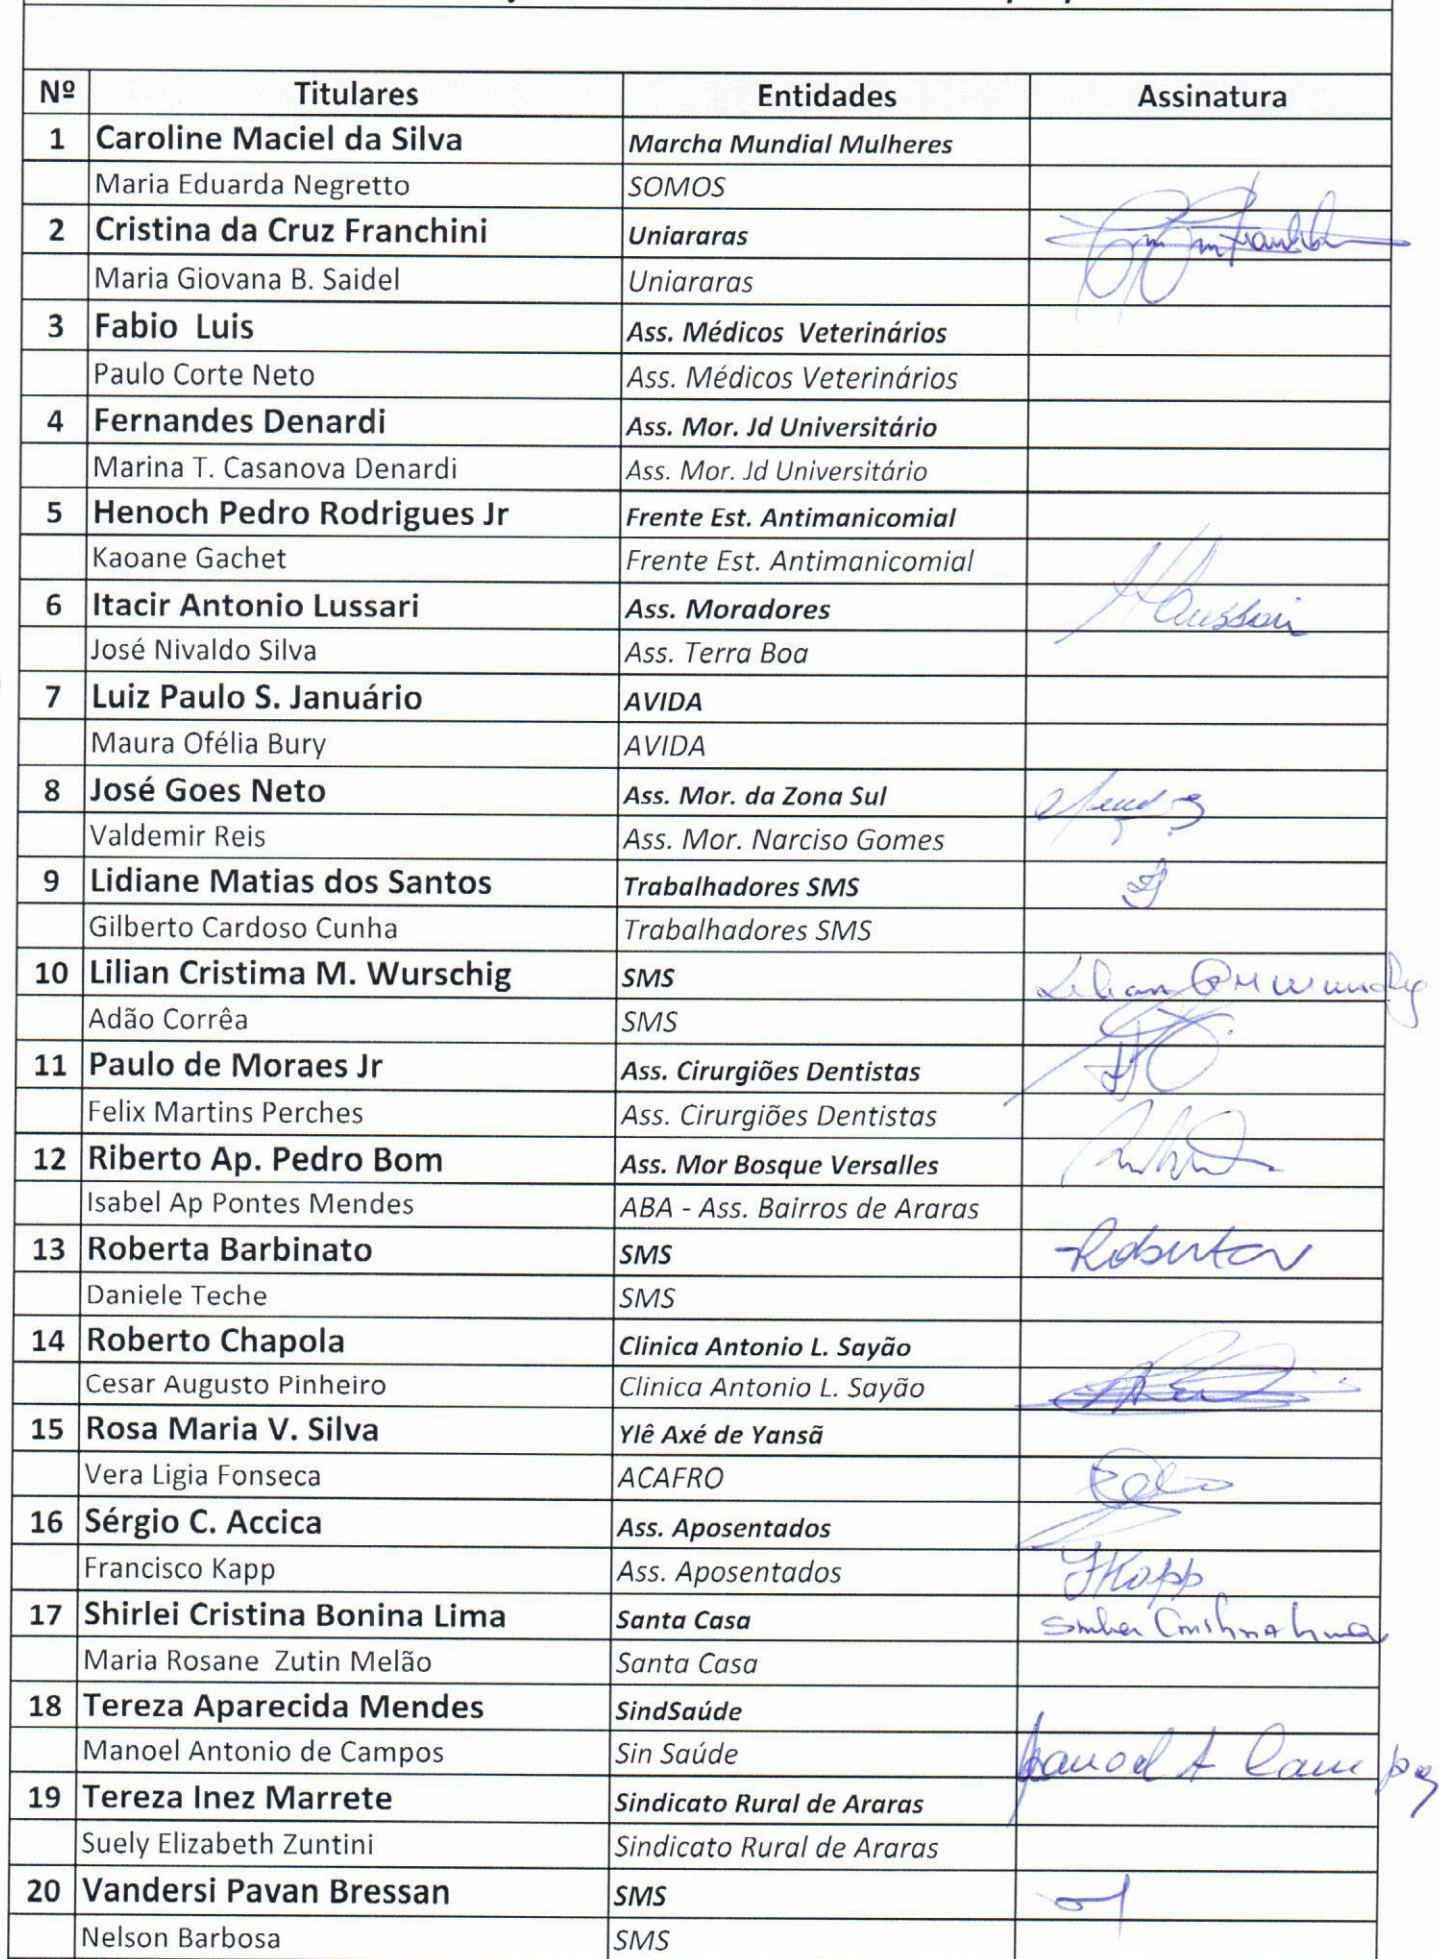 Nº Titulares Entidades Assinatura
1 Caroline Maciel da Silva Marcha Mundial Mulheres
Maria Eduarda Negretto SOMOS
2 Cristina da Cruz Franchini Uniararas
Maria Giovana B. Saidel Uniararas
3 Fabio Luis Ass. Médicos Veterinários
Paulo Corte Neto Ass. Médicos Veterinários
4 Fernandes Denardi Ass. Mor. Jd Universitário
Marina T. Casanova Denardi Ass. Mor. Jd Universitário
5 Henoch Pedro Rodrigues Jr Frente Est. Antimanicomial
Kaoane Gachet Frente Est. Antimanicomial
6 Itacir Antonio Lussari Ass. Moradores
José Nivaldo Silva Ass. Terra Boa
7 Luiz Paulo S. Januário AVIDA
Maura Ofélia Bury AVIDA
8 José Goes Neto Ass. Mor. da Zona Sul
Valdemir Reis Ass. Mor. Narciso Gomes
9 Lidiane Matias dos Santos Trabalhadores SMS
Gilberto Cardoso Cunha Trabalhadores SMS
10 Lilian Cristima M. Wurschig SMS Lilian
Adão Corrêa SMS
11 Paulo de Moraes Jr Ass. Cirurgiões Dentistas
Felix Martins Perches Ass. Cirurgiões Dentistas
12 Riberto Ap. Pedro Bom Ass. Mor Bosque Versalles
Isabel Ap Pontes Mendes ABA - Ass. Bairros de Araras
13 Roberta Barbinato SMS Roberta
Daniele Teche SMS
14 Roberto Chapola Clinica Antonio L. Sayão
Cesar Augusto Pinheiro Clinica Antonio L. Sayão
15 Rosa Maria V. Silva Ylê Axé de Yansã
Vera Ligia Fonseca ACAFRO
16 Sérgio C. Accica Ass. Aposentados
Francisco Kapp Ass. Aposentados FKapp
17 Shirlei Cristina Bonina Lima Santa Casa Cristina Lima
Maria Rosane Zutin Melão Santa Casa
18 Tereza Aparecida Mendes SindSaúde
Manoel Antonio de Campos Sin Saúde Manoel A Campos
19 Tereza Inez Marrete Sindicato Rural de Araras
Suely Elizabeth Zuntini Sindicato Rural de Araras
20 Vandersi Pavan Bressan SMS
Nelson Barbosa SMS